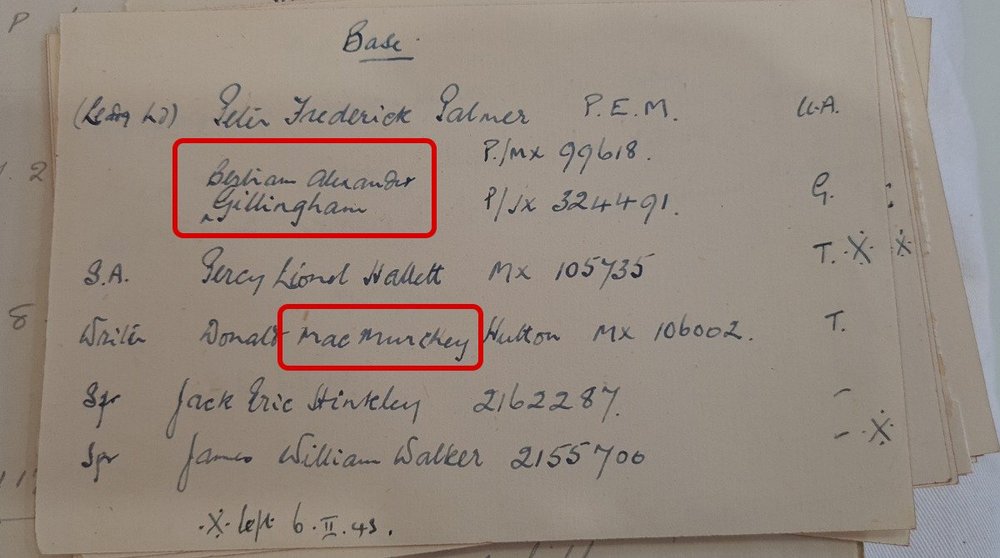 Base
(Ldg Wtr) Peter Frederick Palmer P.E.M. U.A.
P./MX 99618.
Bertram Alexander
Gillingham P/JX 324491. G.
S.A. Percy Lionel Hallett MX 105735 T. X X
Writer Donald MacMurchey Hutton MX 106002. T.
Spr Jack Eric Hinkley 2162287. -
Spr James William Walker 2155700 - X
X left 6.II.43.
P
2
8